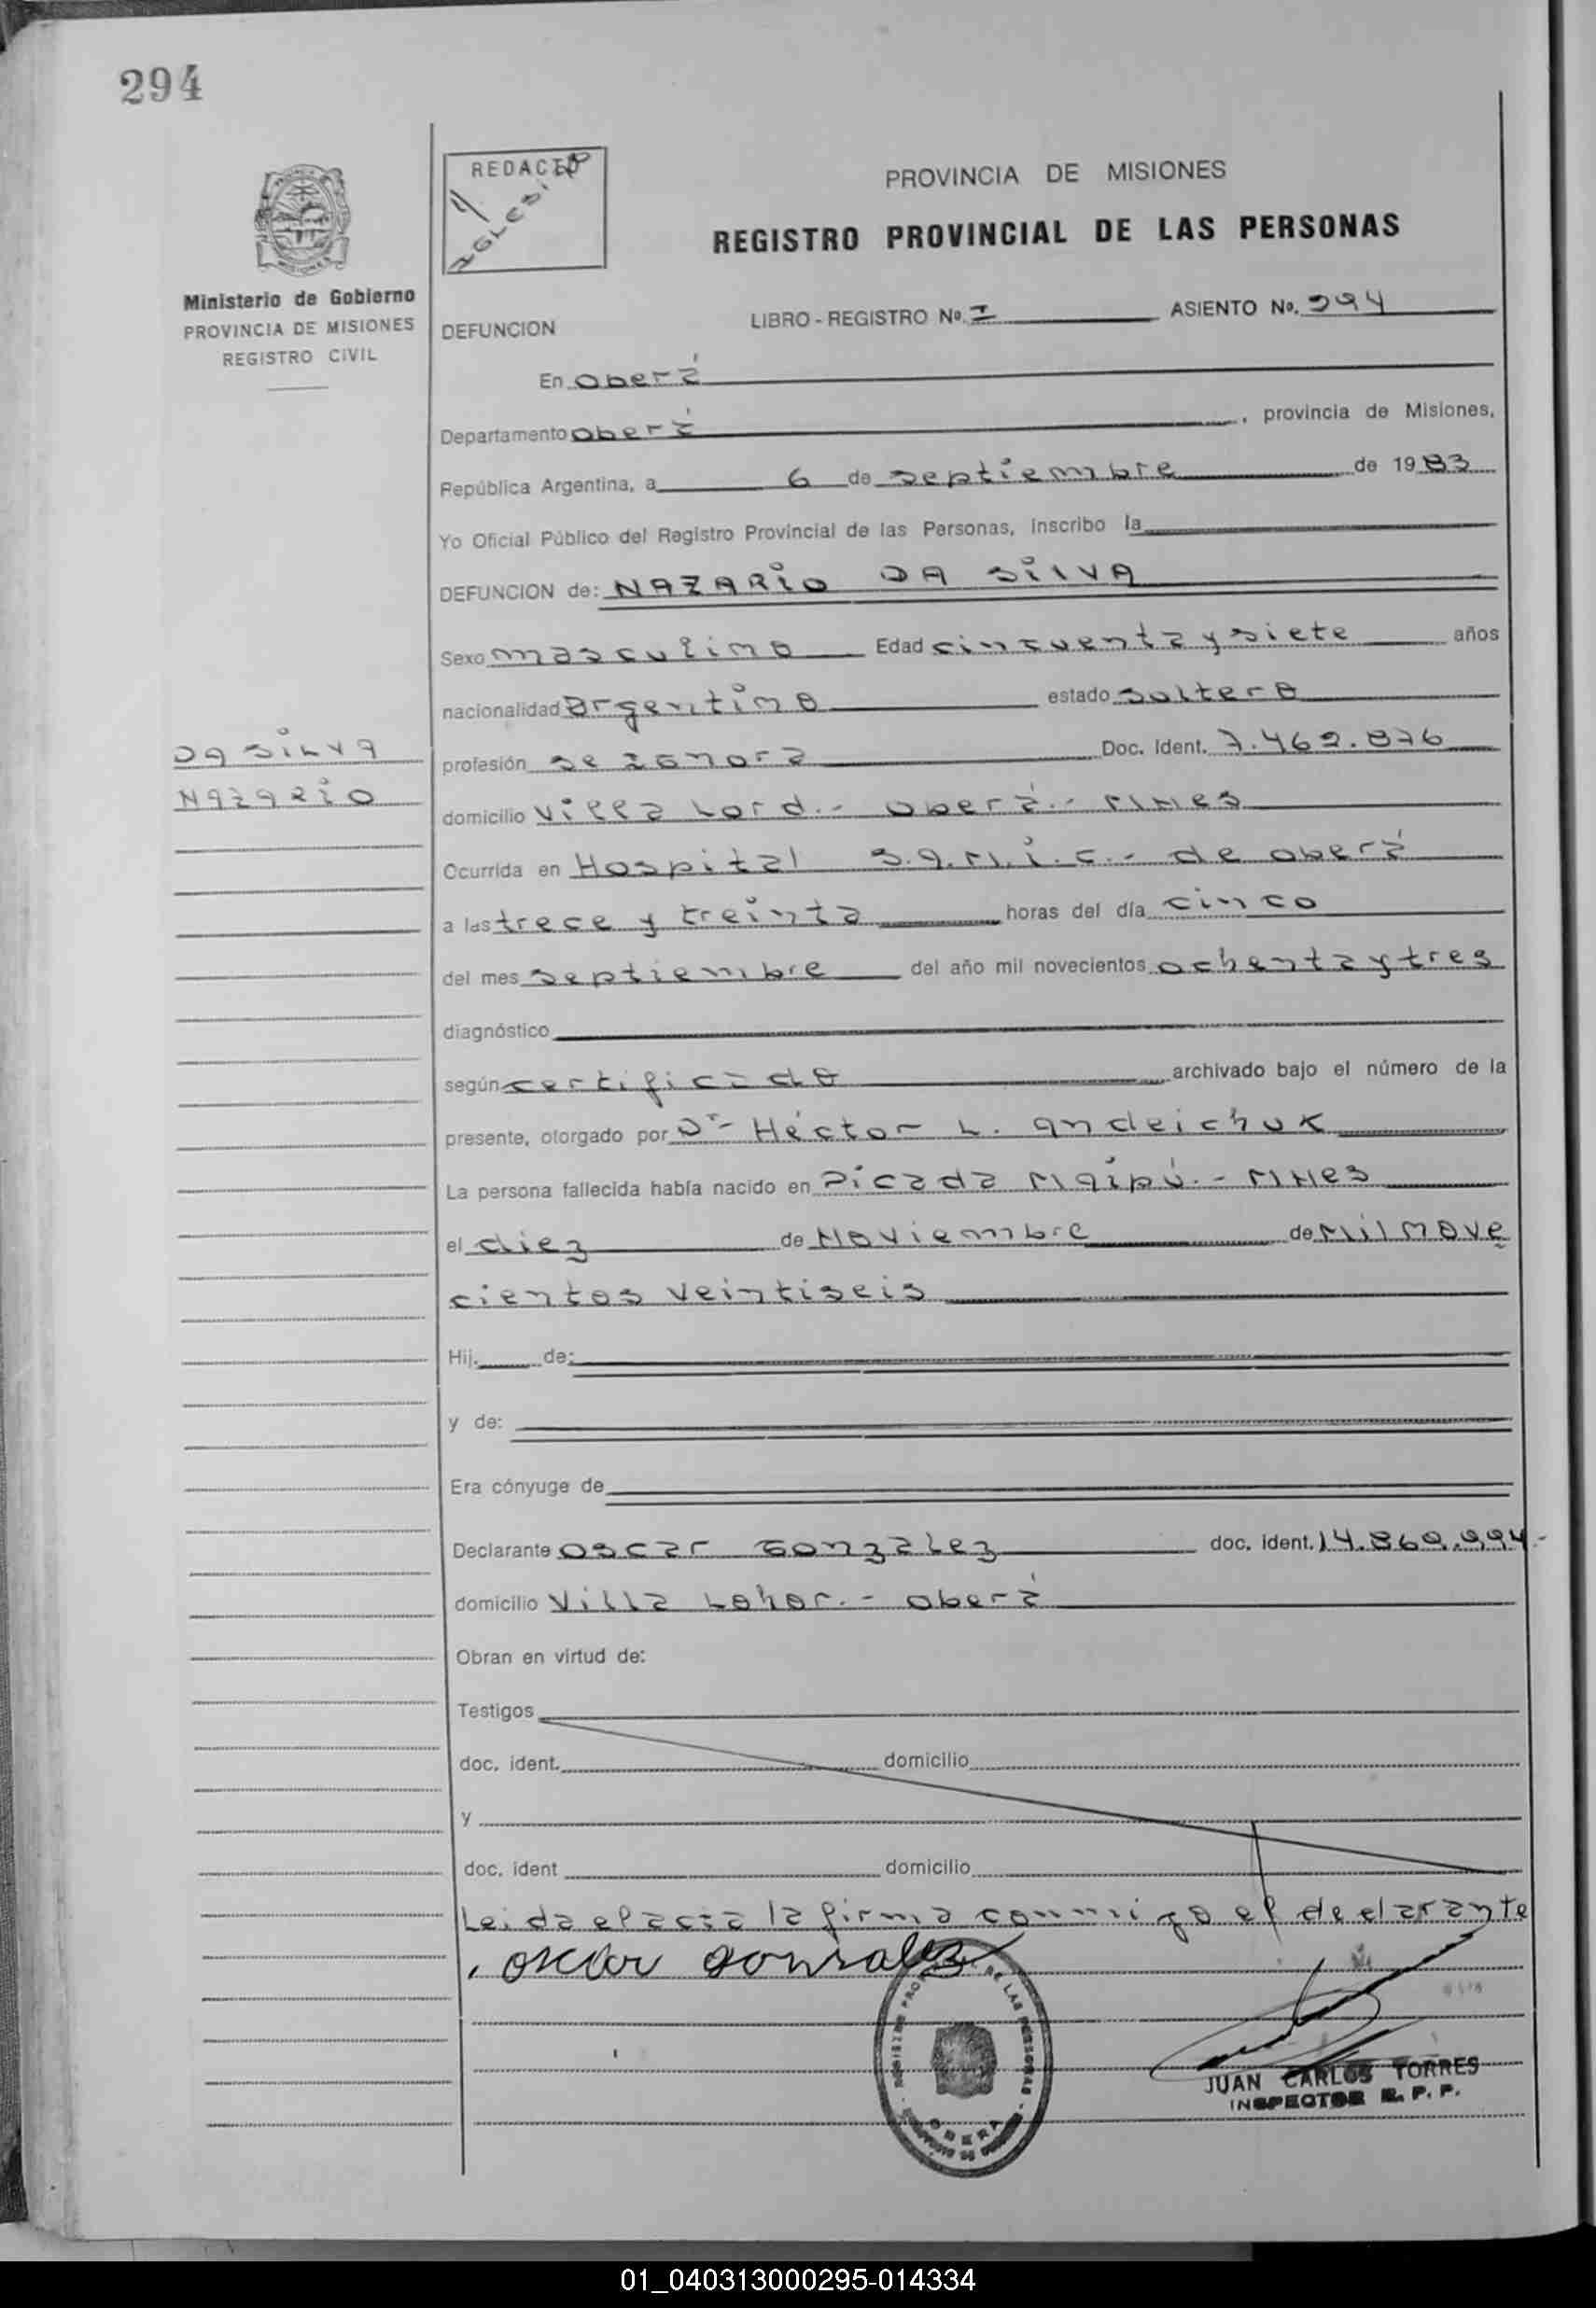 294
REDACTO
Ministerio de Gobierno
PROVINCIA DE MISIONES
REGISTRO CIVIL
PROVINCIA DE MISIONES
REGISTRO PROVINCIAL DE LAS PERSONAS
DEFUNCION LIBRO - REGISTRO Nº. I ASIENTO No. 294
En Oberá
Departamento Oberá, provincia de Misiones,
República Argentina, a 6 de septiembre de 1983
Yo Oficial Público del Registro Provincial de las Personas, inscribo la
DEFUNCION de: NAZARIO DA SILVA
Sexo masculino Edad cincuenta y siete años
nacionalidad argentino estado soltero
DA SILVA
NAZARIO
profesión se ignora Doc. Ident. 7.469.876
domicilio Villa Lord.- Oberá.- MNes
Ocurrida en Hospital S.A.M.i.C.- de Oberá
a las trece y treinta horas del día cinco
del mes septiembre del año mil novecientos ochenta y tres
diagnóstico
según certificado archivado bajo el número de la
presente, otorgado por Dr- Héctor L. Andeichuk
La persona fallecida había nacido en Picada Maipú.- MNes
el diez de Noviembre de Mil Nove
cientos veintiseis
Hij. de:
y de:
Era cónyuge de
Declarante Oscar Gonzalez doc. ident. 14.869.994.-
domicilio Villa Lohor.- Oberá
Obran en virtud de:
Testigos
doc. ident. domicilio
y
doc. ident domicilio
Leida el acta la firma conmigo el declarante
oscar gonzalez
REGISTRO PROVINCIAL DE LAS PERSONAS
OBERA
JUAN CARLOS TORRES
INSPECTOR R. P. P.
01_040313000295-014334